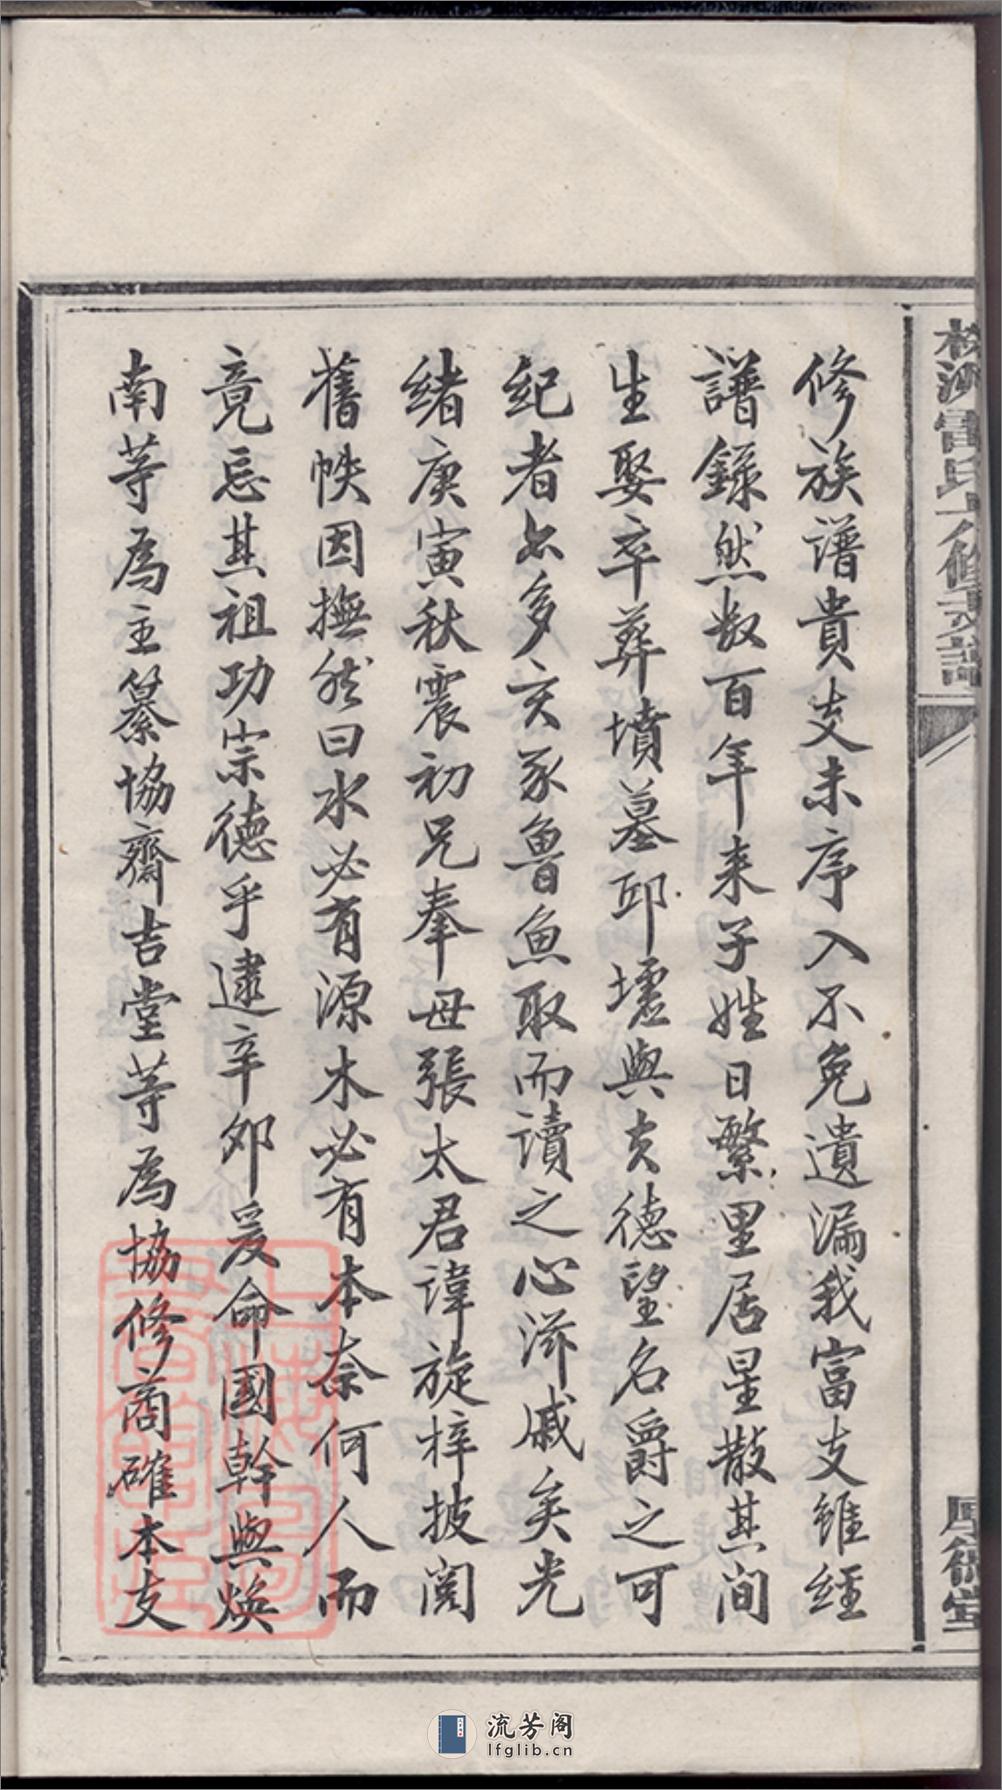 修族譜貴支未序入不免遺漏我富支雖經
譜錄然数百年来子姓日繁里居星散其間
生娶卒葬墳墓邱壠與夫德望名爵之可
紀者亦多亥豕魯魚取而讀之心滋戚矣光
緒庚寅秋震初兄奉母張太君諱旋梓披閱
舊帙因撫然曰水必有源木必有本奈何人而
竟忘其祖功宗德乎逮辛卯爰命國幹與煥
南等為主纂協齋吉堂等為協修商確本支
雷氏六修支譜
厚
堂
流芳阁
lfglib.cn